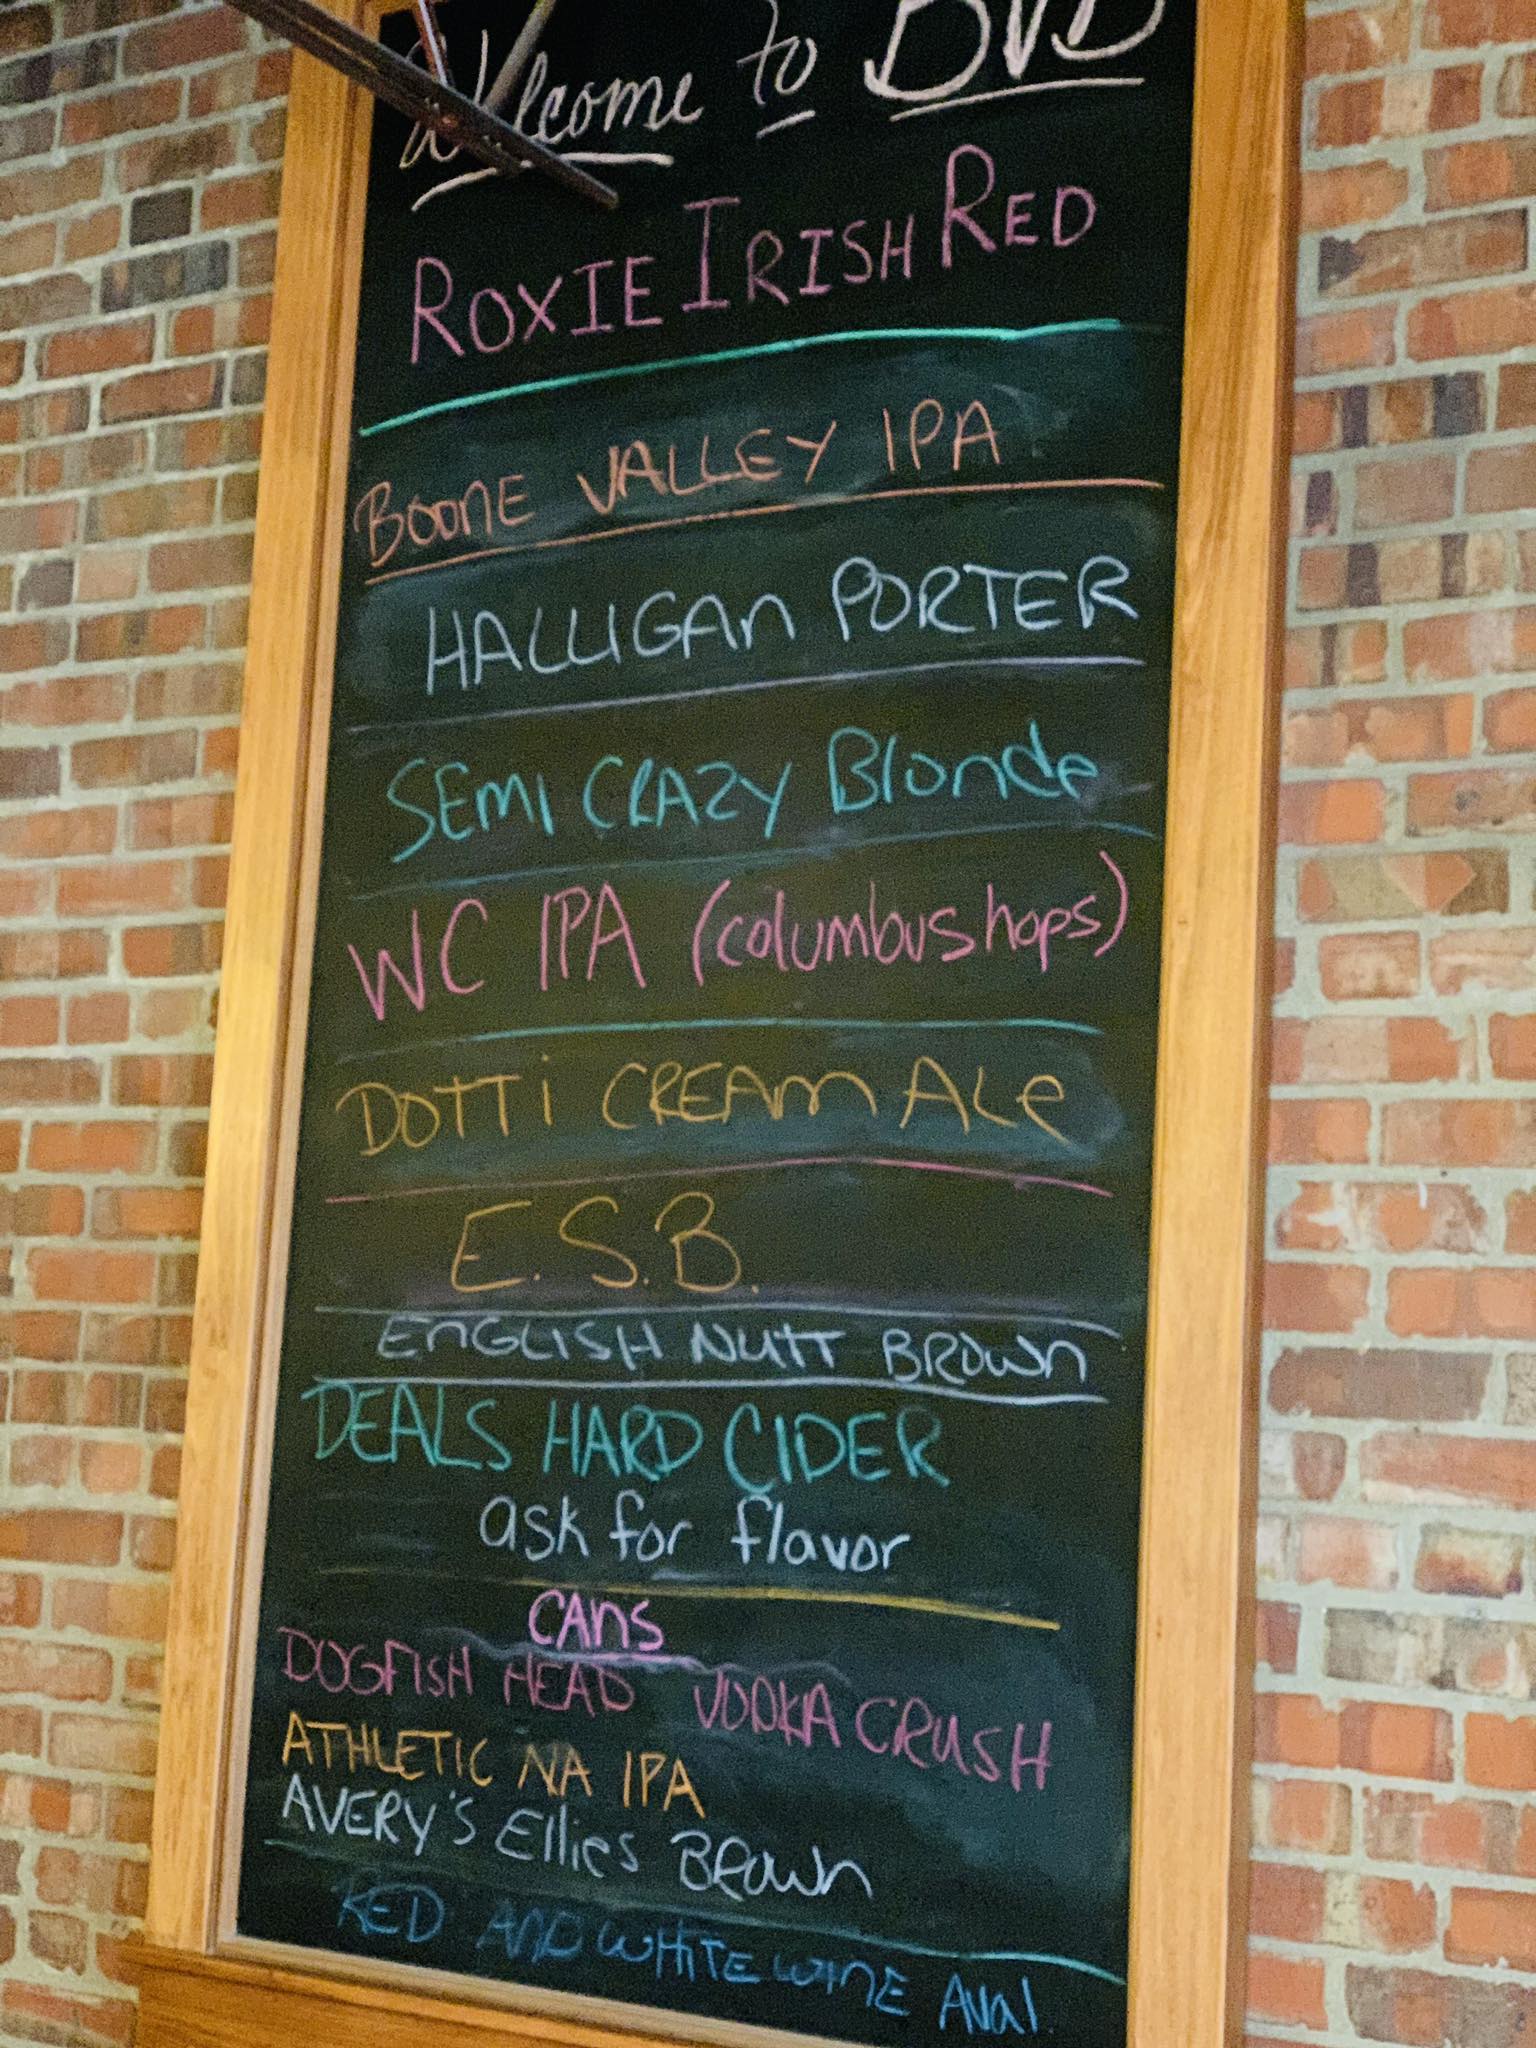 Welcome to BVB
ROXIE IRISH RED
BOONE VALLEY IPA
HALLIGAN PORTER
SEMI CRAZY Blonde
WC IPA (columbus hops)
DOTTi CREAM ALe
E.S.B.
ENGLISH NUTT BROWN
DEALS HARD CIDER
ask for flavor
CANS
DOGFISH HEAD VODKA CRUSH
ATHLETIC NA IPA
AVERY'S Ellies BROWN
RED AND WHITE WINE Aval